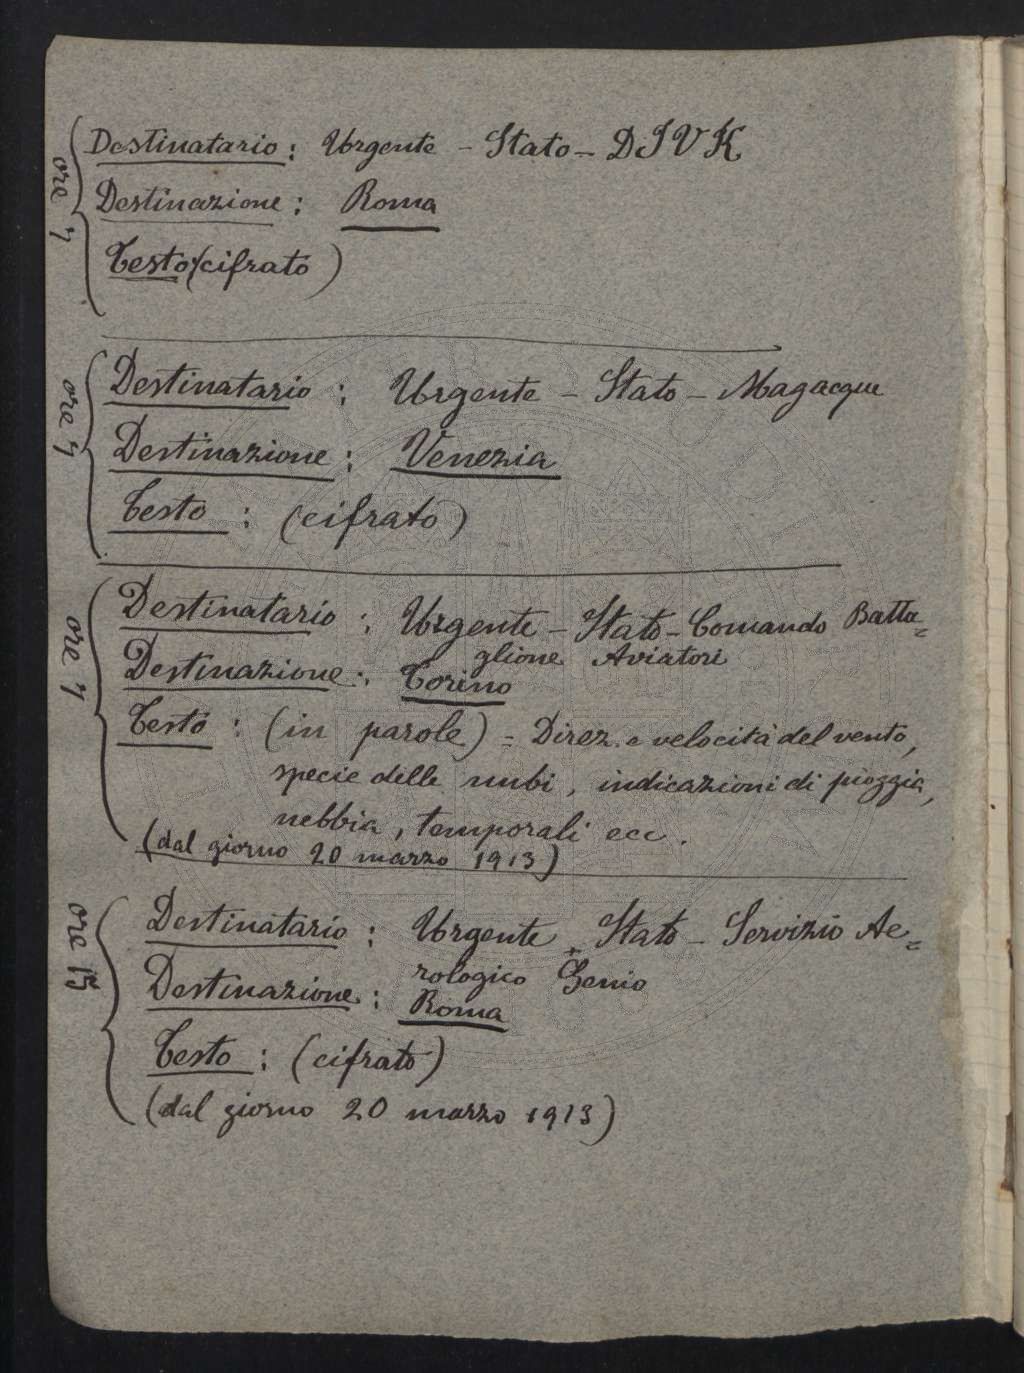 ore 7
Destinatario: Urgente - Stato - DIVK
Destinazione: Roma
Testo (cifrato)
ore 7
Destinatario: Urgente - Stato - Magacque
Destinazione: Venezia
Testo: (cifrato)
ore 7
Destinatario: Urgente - Stato - Comando Batta=
glione Aviatori
Destinazione: Torino
Testo: (in parole) = Direz. e velocità del vento,
specie delle nubi, indicazioni di pioggia,
nebbia, temporali ecc.
(dal giorno 20 marzo 1913)
ore 15
Destinatario: Urgente - Stato - Servizio Ae=
rologico Genio
Destinazione: Roma
Testo: (cifrato)
(dal giorno 20 marzo 1913)